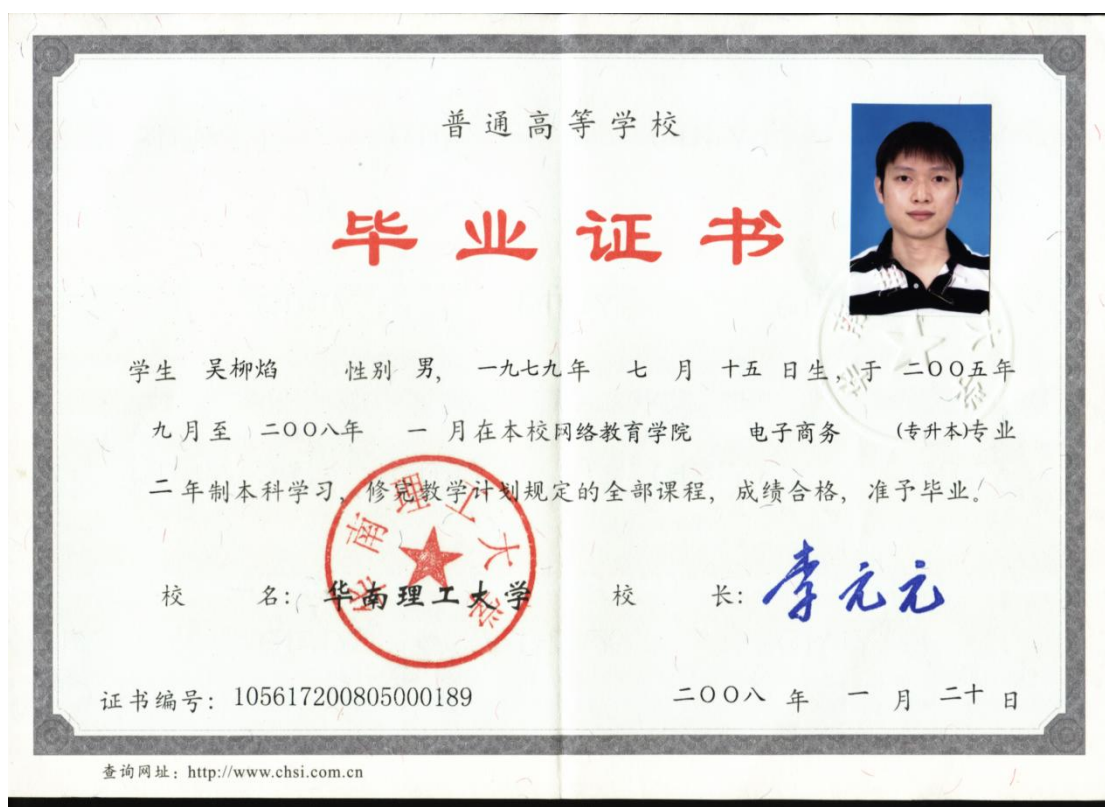 普通高等学校
毕业证书
学生 吴柳焰 性别 男, 一九七九年 七 月 十五 日生,于 二〇〇五年
九月至 二〇〇八年 一 月在本校网络教育学院 电子商务 (专升本)专业
二年制本科学习,修完教学计划规定的全部课程,成绩合格,准予毕业。
华南理工大学
校 名: 华南理工大学 校 长: 李元元
证书编号: 105617200805000189 二〇〇八 年 一 月 二十 日
查询网址: http://www.chsi.com.cn